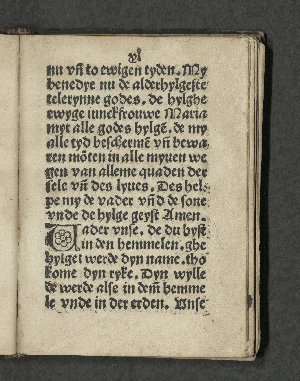 vi
nu vñ to ewigen tyden. My
benedye nu de alderhylgeste
telerynne godes. de hylghe
ewyge iunckfrouwe Maria
myt alle godes hylgē. de my
alle tyd beschermē vñ bewa
ren mōten in alle mynen we
gen van alleme quaden der
sele vñ des lyues. Des hel⸗
pe my de vader vñd de sone
vnde de hylge geyst Amen.
Vader vnse. de du byst
in den hemmelen. ghe
hylget werde dyn name. tho
kome dyn ryke. Dyn wylle
de werde alse in dem̄ hemme
le vnde in der erden. Vnse